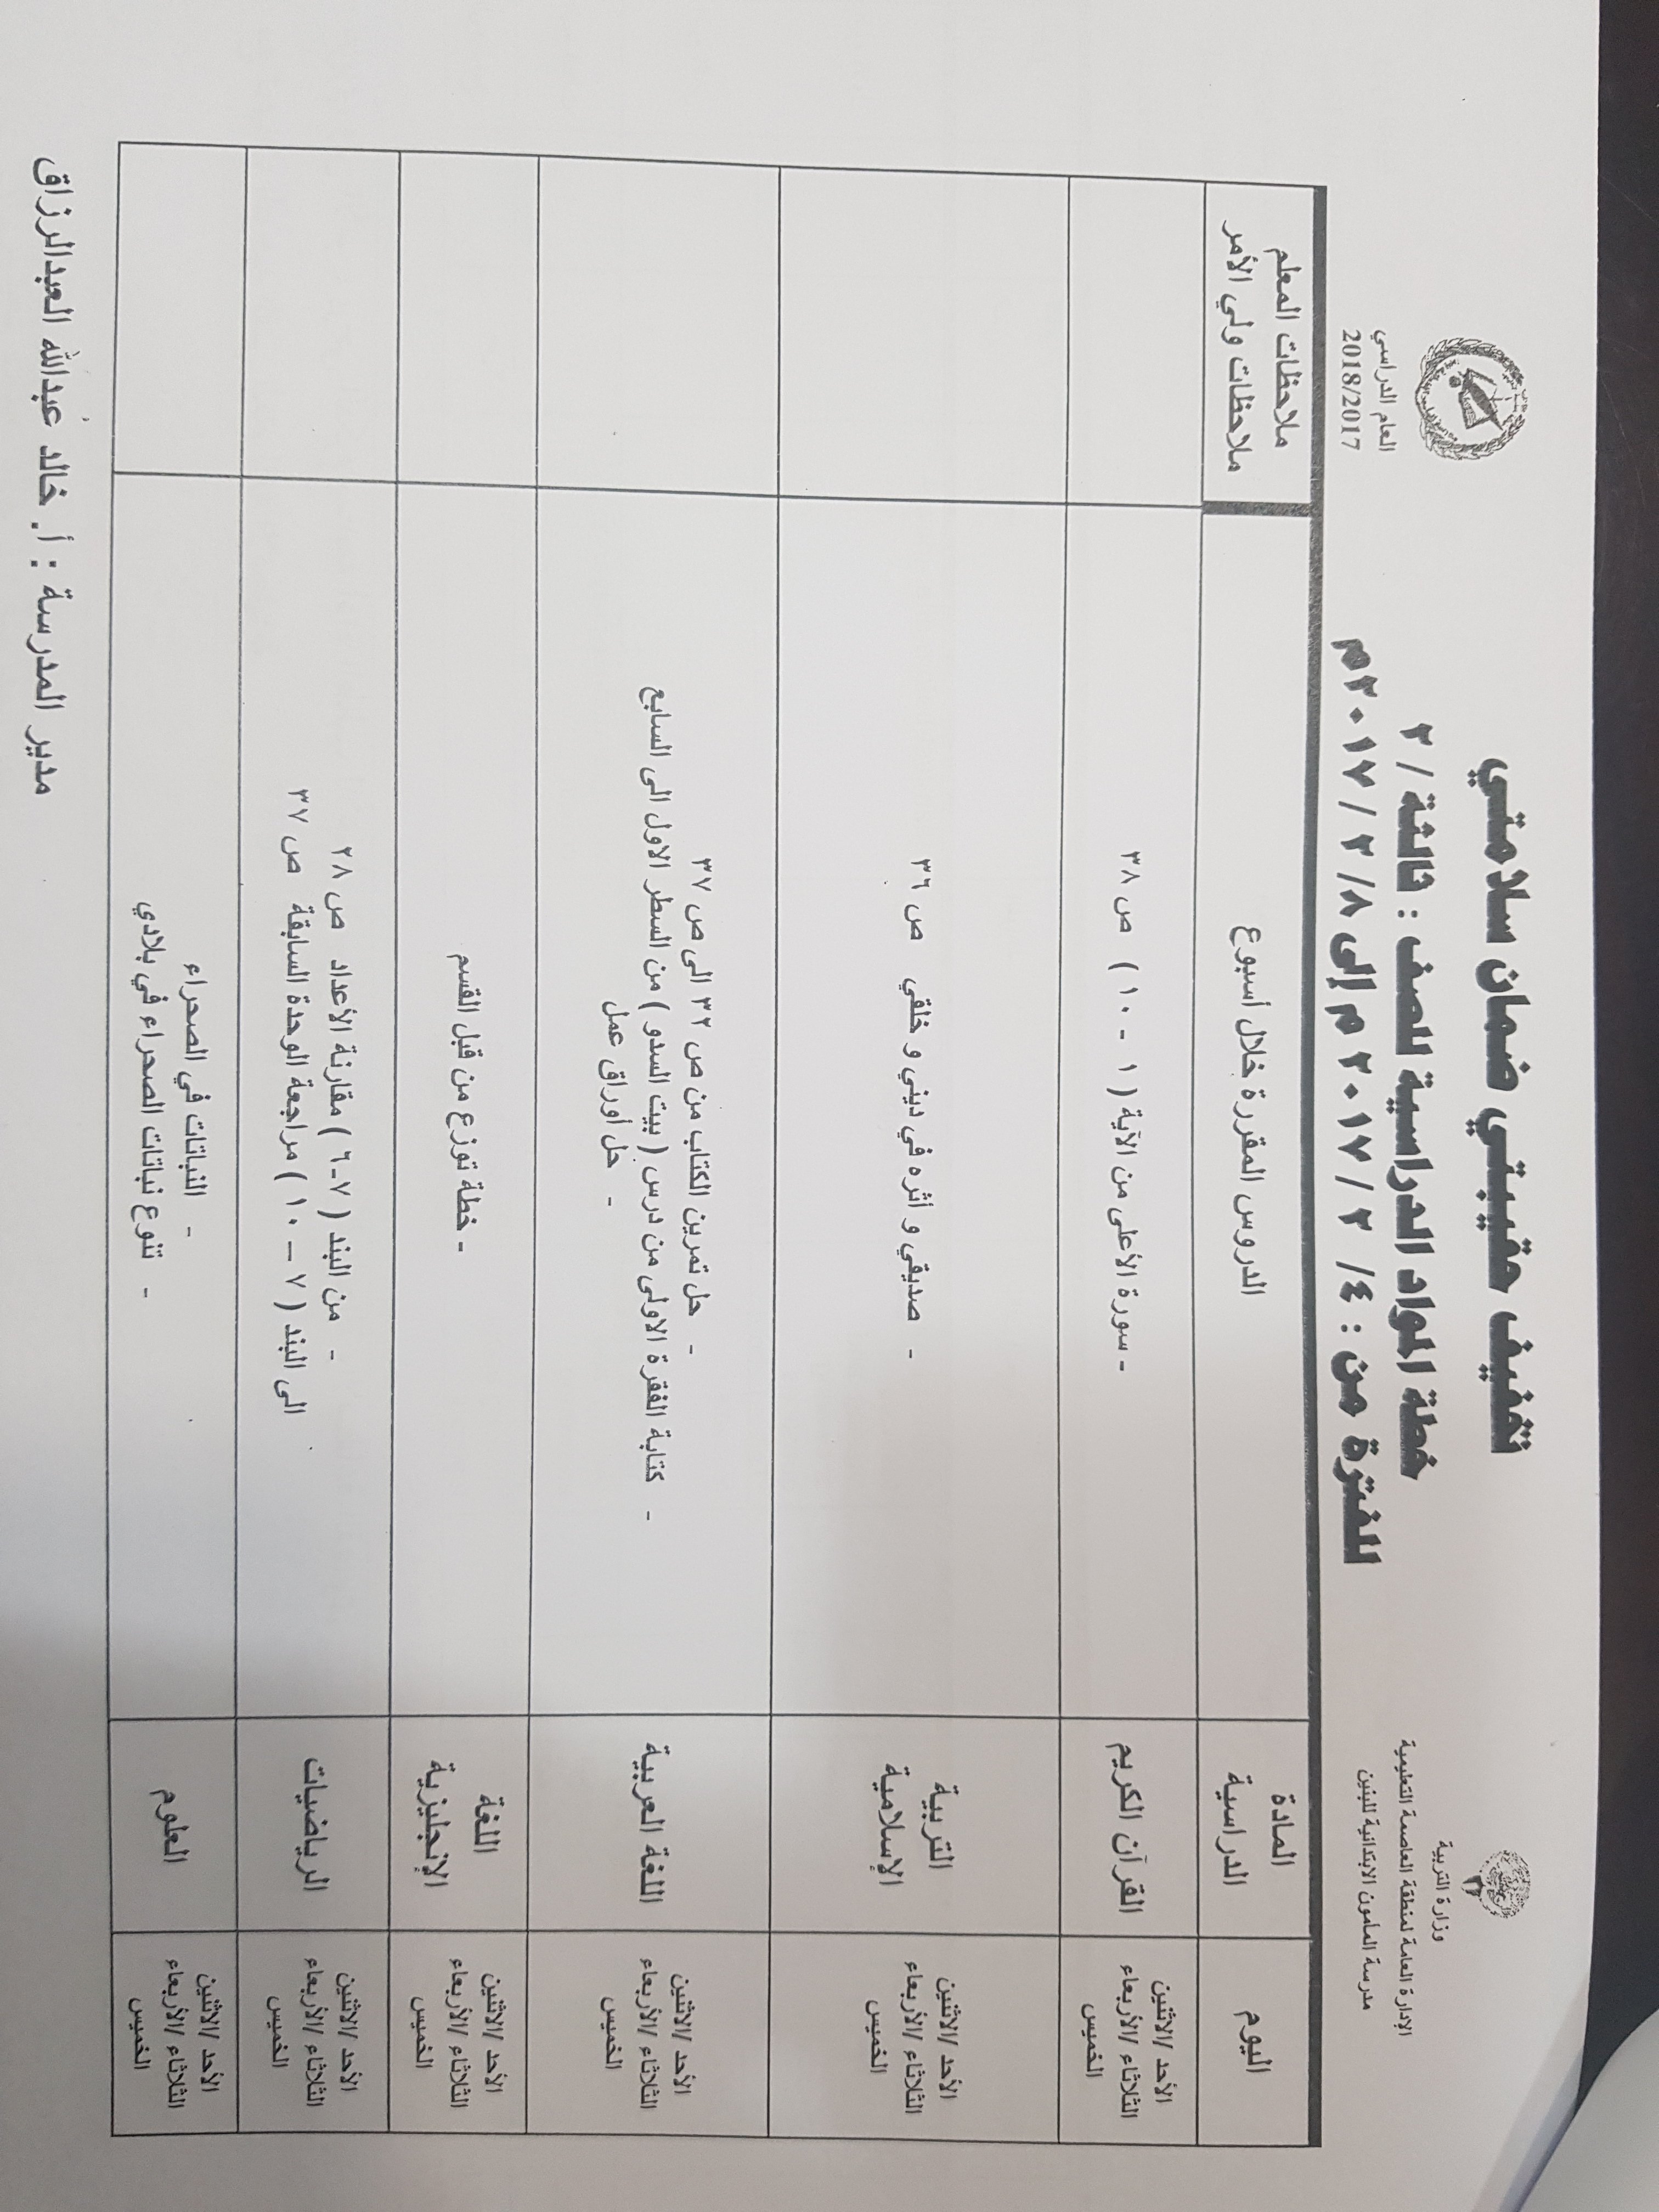 وزارة التربية
الإدارة العامة لمنطقة العاصمة التعليمية
مدرسة المامون الابتدائية للبنين
العام الدراسي
2018/2017
تخفيف حقيبتي ضمان سلامتي
خطة المواد الدراسية للصف : ثالثة / ٢
للفترة من : ٤/ ٢ / ٢٠١٧ م إلى ٨/ ٢ / ٢٠١٧م
اليوم
المادة
الدراسية
الدروس المقررة خلال أسبوع
ملاحظات المعلم
ملاحظات ولي الأمر
الأحد /الاثنين
الثلاثاء /الأربعاء
الخميس
القرآن الكريم
- سورة الأعلى من الآية ( ١ - ١٠ ) ص ٣٨
الأحد /الاثنين
الثلاثاء /الأربعاء
الخميس
التربية
الإسلامية
- صديقي و أثره في ديني و خلقي ص ٣٦
الأحد /الاثنين
الثلاثاء /الأربعاء
الخميس
اللغة العربية
- حل تمرين الكتاب من ص ٣٢ الى ص ٣٧
- كتابة الفقرة الاولى من درس ( بيت السدو ) من السطر الاول الى السابع
- حل أوراق عمل
الأحد /الاثنين
الثلاثاء /الأربعاء
الخميس
اللغة
الإنجليزية
- خطة توزع من قبل القسم
الأحد /الاثنين
الثلاثاء /الأربعاء
الخميس
الرياضيات
- من البند ( ٧-٦ ) مقارنة الأعداد ص ٢٨
الى البند ( ٧ – ١٠ ) مراجعة الوحدة السابقة ص ٣٧
الأحد /الاثنين
الثلاثاء /الأربعاء
الخميس
العلوم
- النباتات في الصحراء
- تنوع نباتات الصحراء في بلادي
مدير المدرسة : أ. خالد عبدالله العبدالرزاق